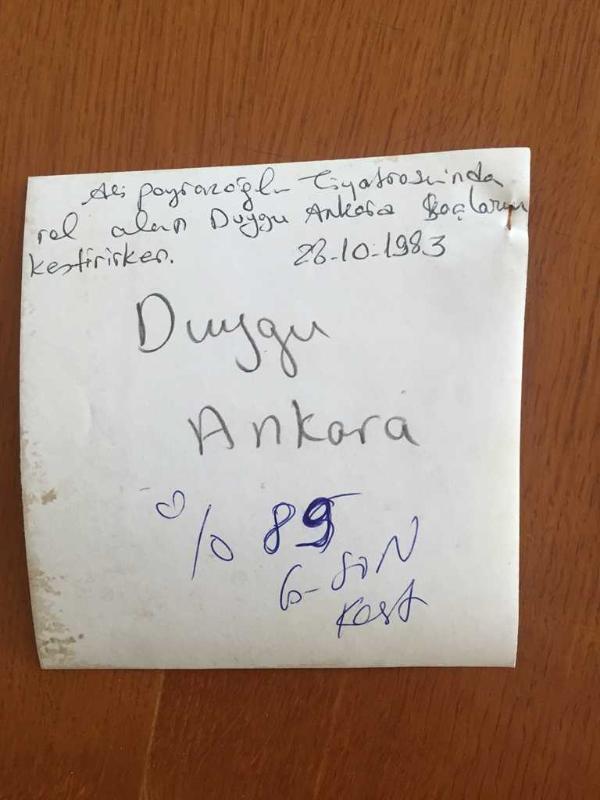 Ali poyrazoğlu Tiyatrosunda
rol alan Duygu Ankara Saçlarını
kestirirken. 28-10-1983
Duygu
Ankara
% 85
6-SüN
Kest